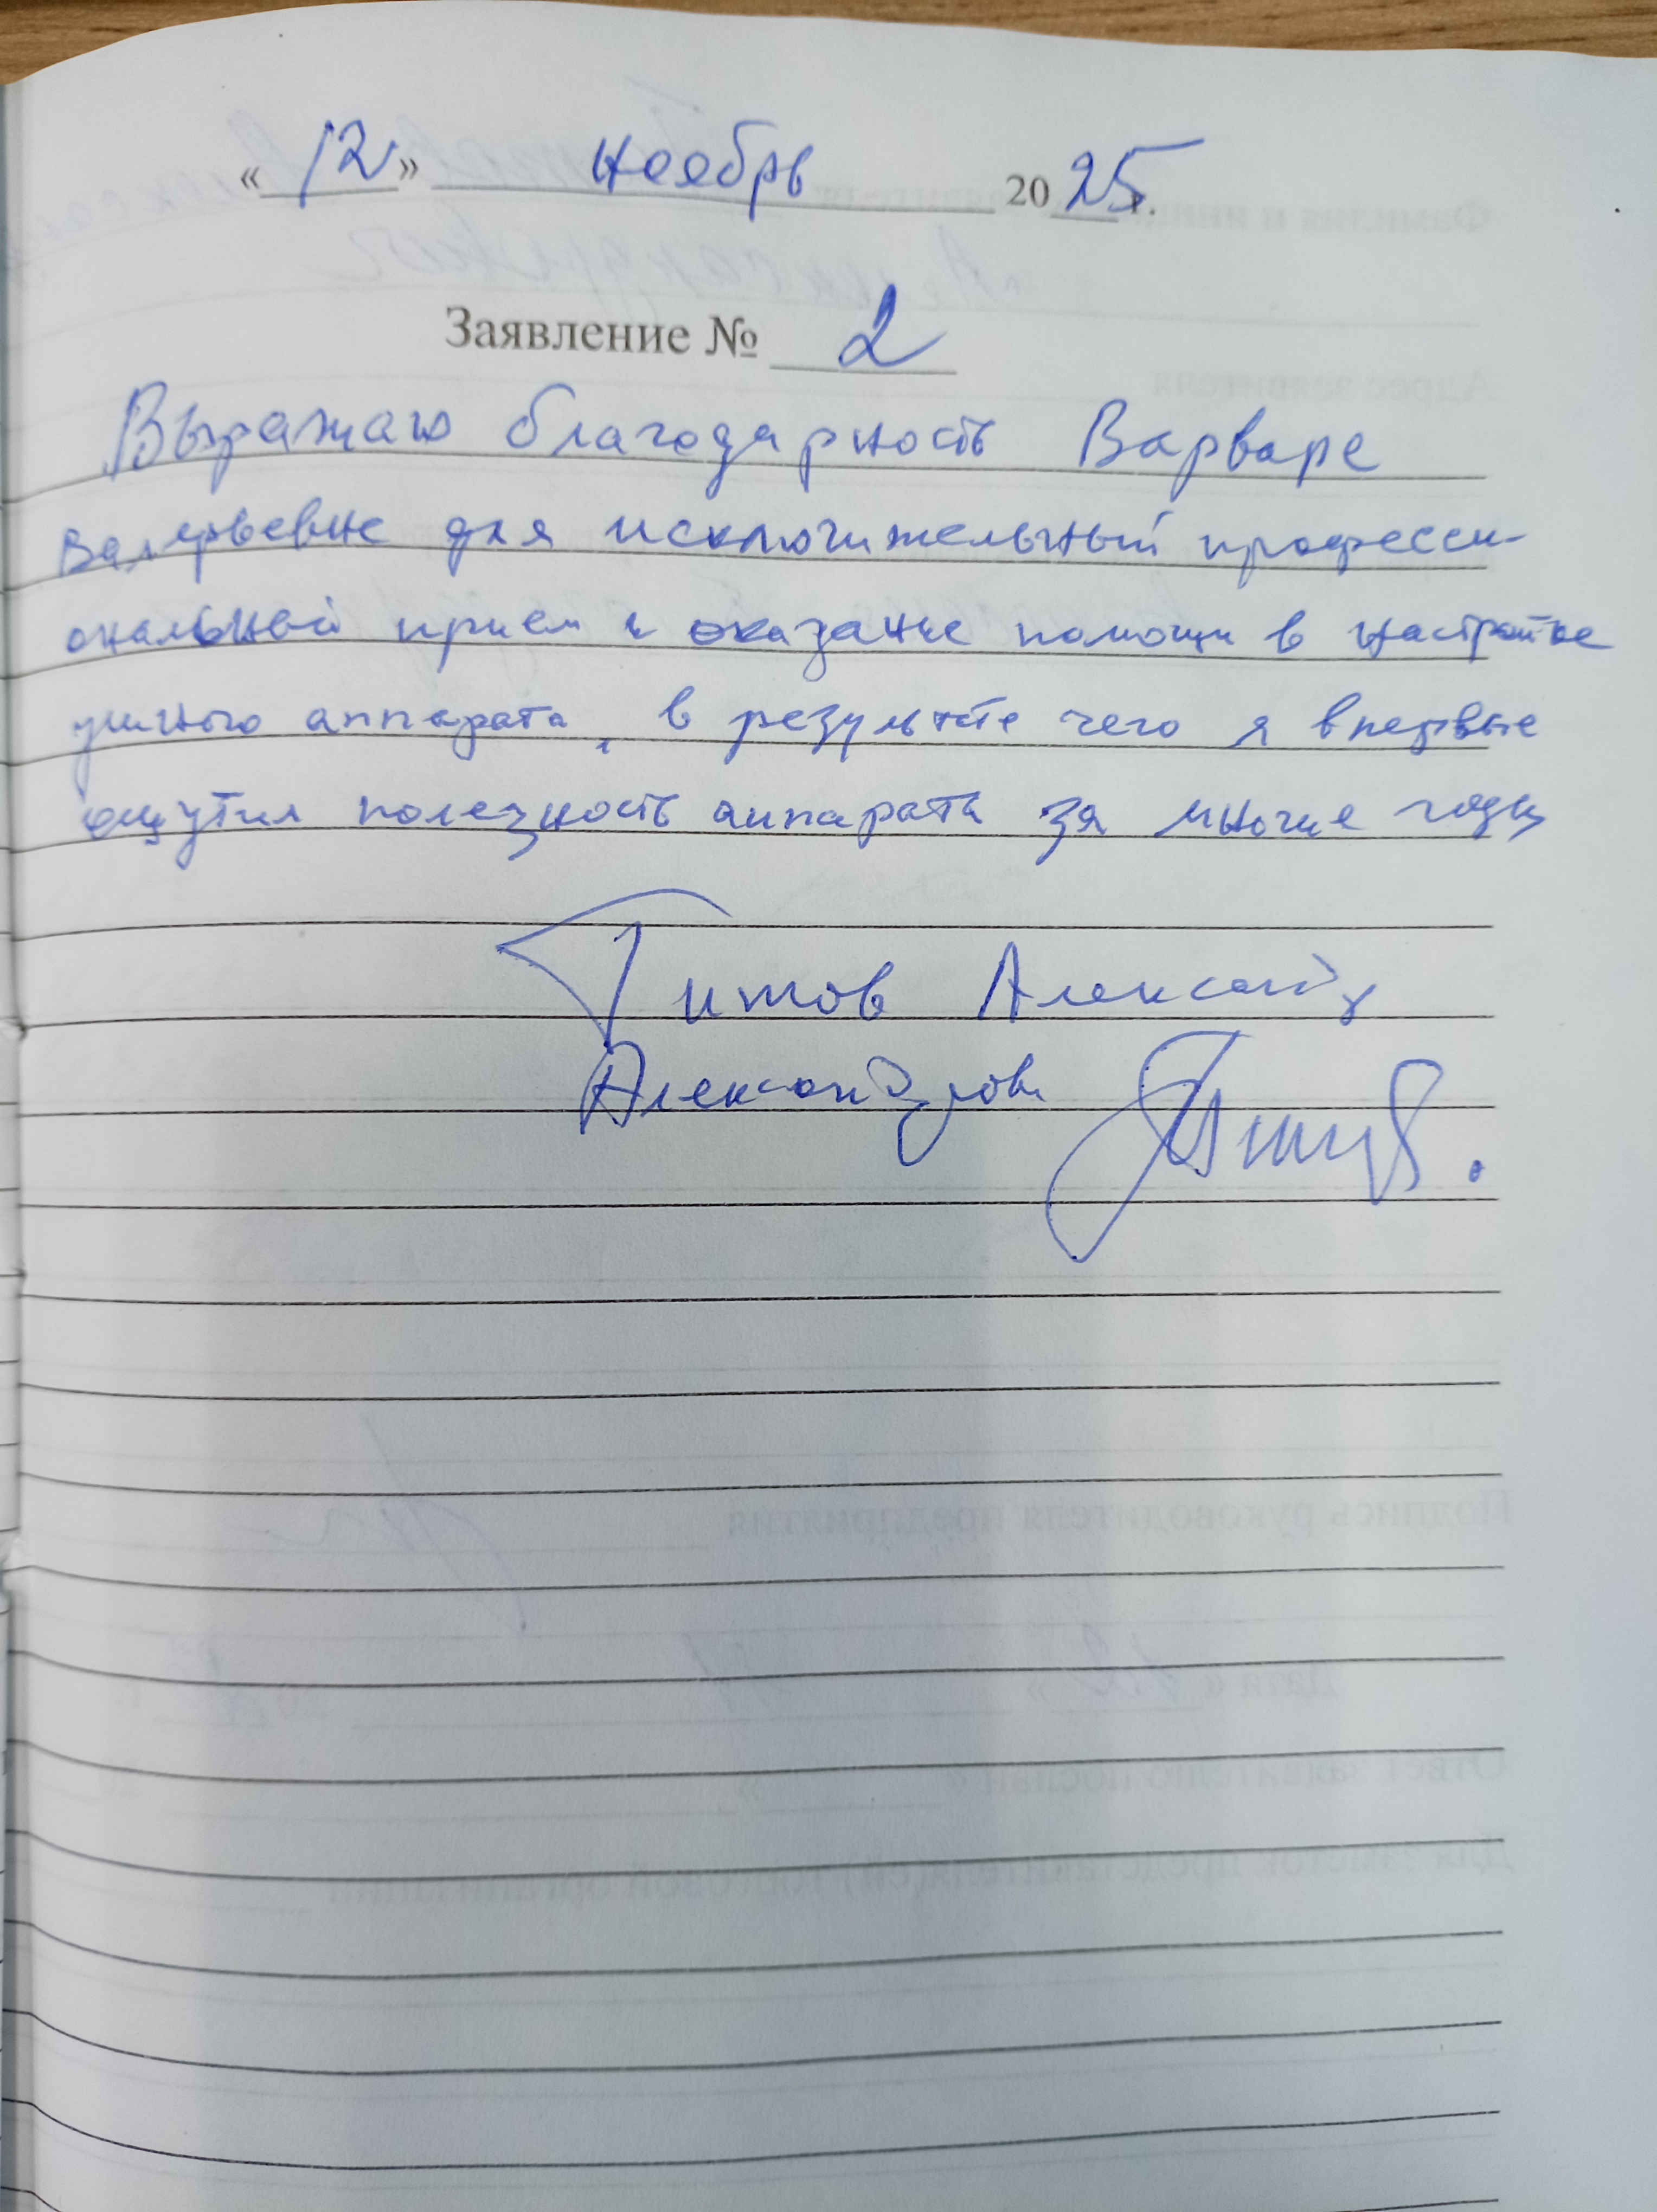 «12» ноябрь 2025 г.
Заявление № 2
Выражаю благодарность Варваре
Валерьевне для исключительный професси-
ональный прием и оказание помощи в настройке
ушного аппарата, в результате чего я впервые
ощутил полезность аппарата за многие годы
Титов Александр
Александрович